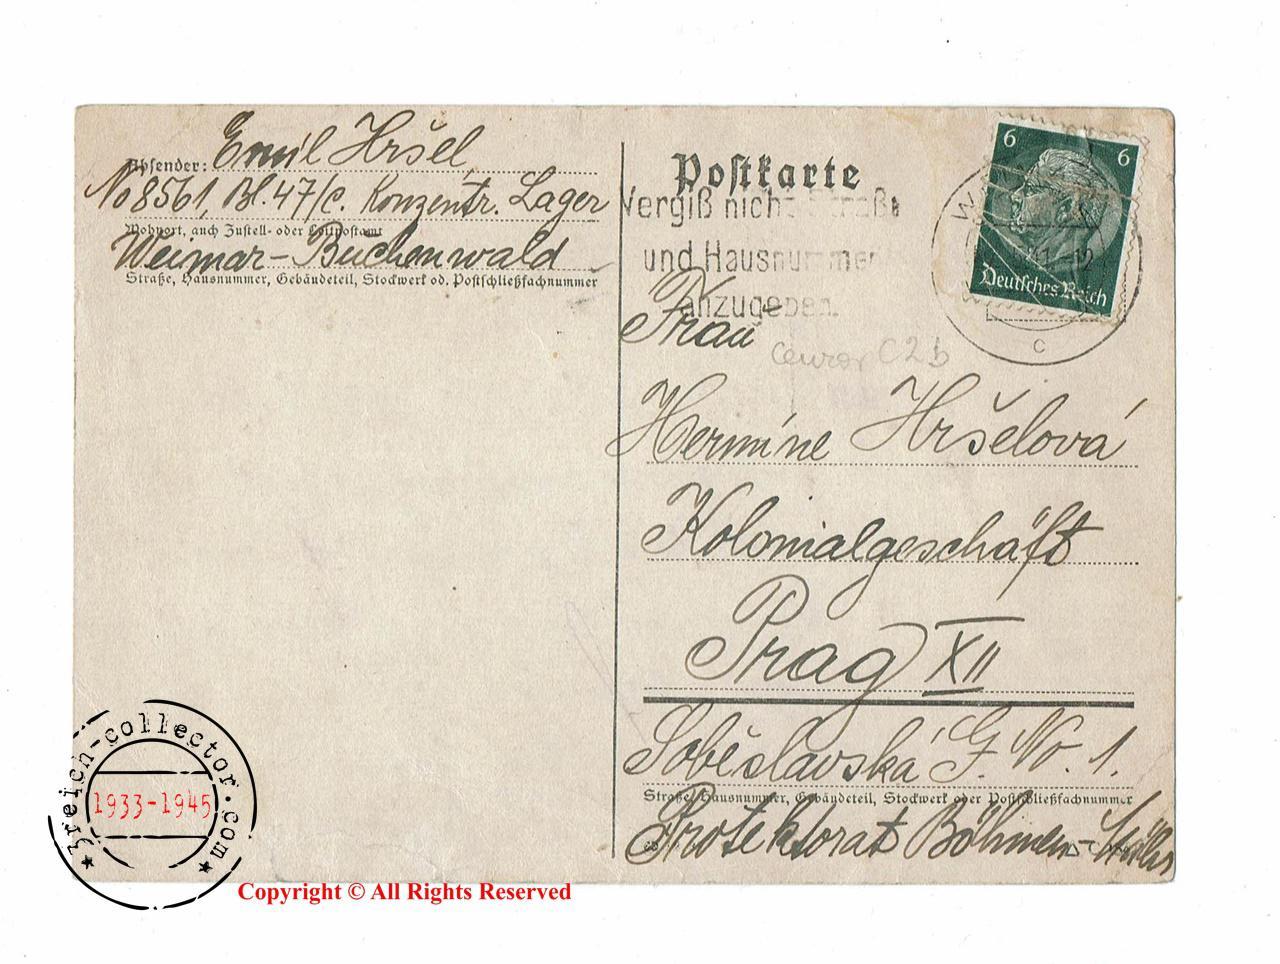 Absender: Emil Hršel,
No 8561, Bl. 47/c. Konzentr. Lager
Wohnort, auch Zustell- oder Leitpostamt
Weimar-Buchenwald
Straße, Hausnummer, Gebäudeteil, Stockwerk od. Postschließfachnummer
Postkarte
Vergiß nicht Straße
und Hausnummer
anzugeben.
6 6
Deutsches Reich
41.-12
c
Frau
C2b
Hermine Hršelová
Kolonialgeschäft
Prag XII
Soběslavská G. No. 1.
Straße, Hausnummer, Gebäudeteil, Stockwerk oder Postschließfachnummer
Protektorat Böhmen-Mähr
3reich-collector.com
1933-1945
Copyright © All Rights Reserved